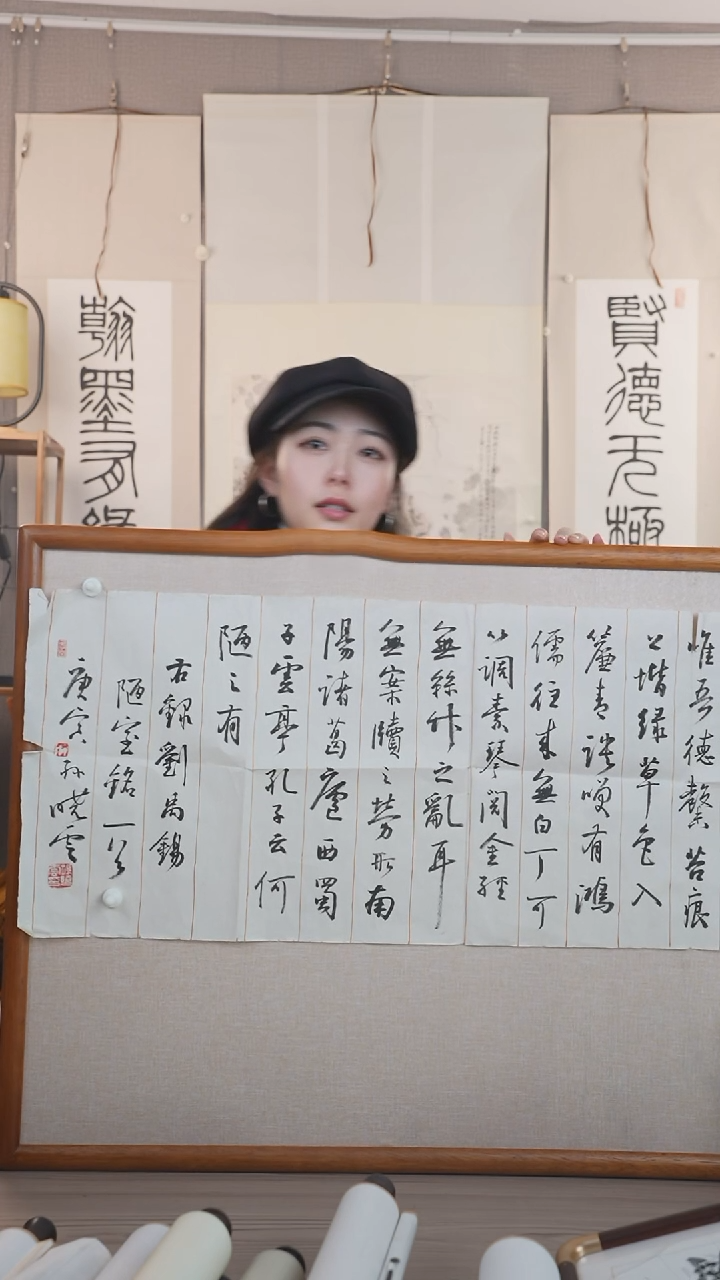 賢德无極
翰墨有緣
惟吾德馨苔痕
上堦緑草色入
簾青談咲有鴻
儒往來無白丁可
以調素琴閲金經
無絲竹之亂耳
無案牘之勞形南
陽諸葛廬西蜀
子雲亭孔子云何
陋之有
右録劉禹錫
陋室銘一首
庚寅孫曉雲